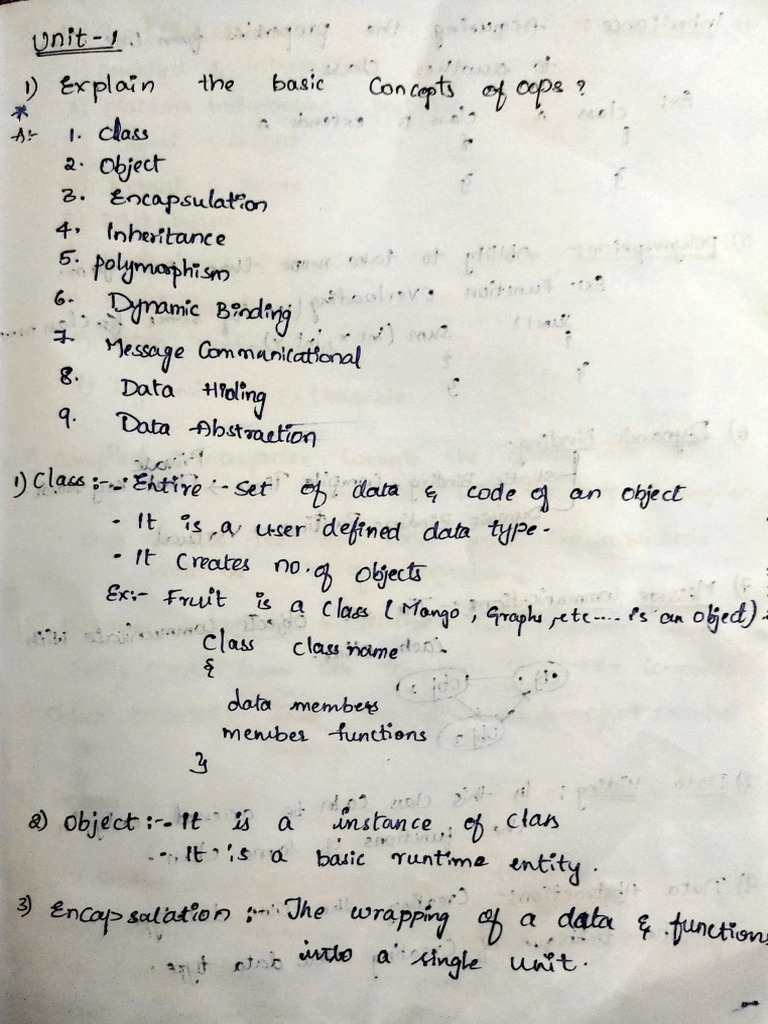 Unit-1.
1) Explain the basic Concepts of oops?
*
A:- 1. Class
2. Object
3. Encapsulation
4. Inheritance
5. polymorphism
6. Dynamic Binding
7. Message Communicational
8. Data Hiding
9. Data Abstraction
1) Class:- . Entire set of data & code of an object
. It is a user defined data type.
. It Creates no. of Objects
Ex:- Fruit is a Class (Mango, Graphs, etc.... is an object).
Class Class name
{
data members
member functions
}
2) Object:- . It is a instance of class
. It is a basic runtime entity.
3) Encapsulation:- The wrapping of a data & functions
into a single unit.